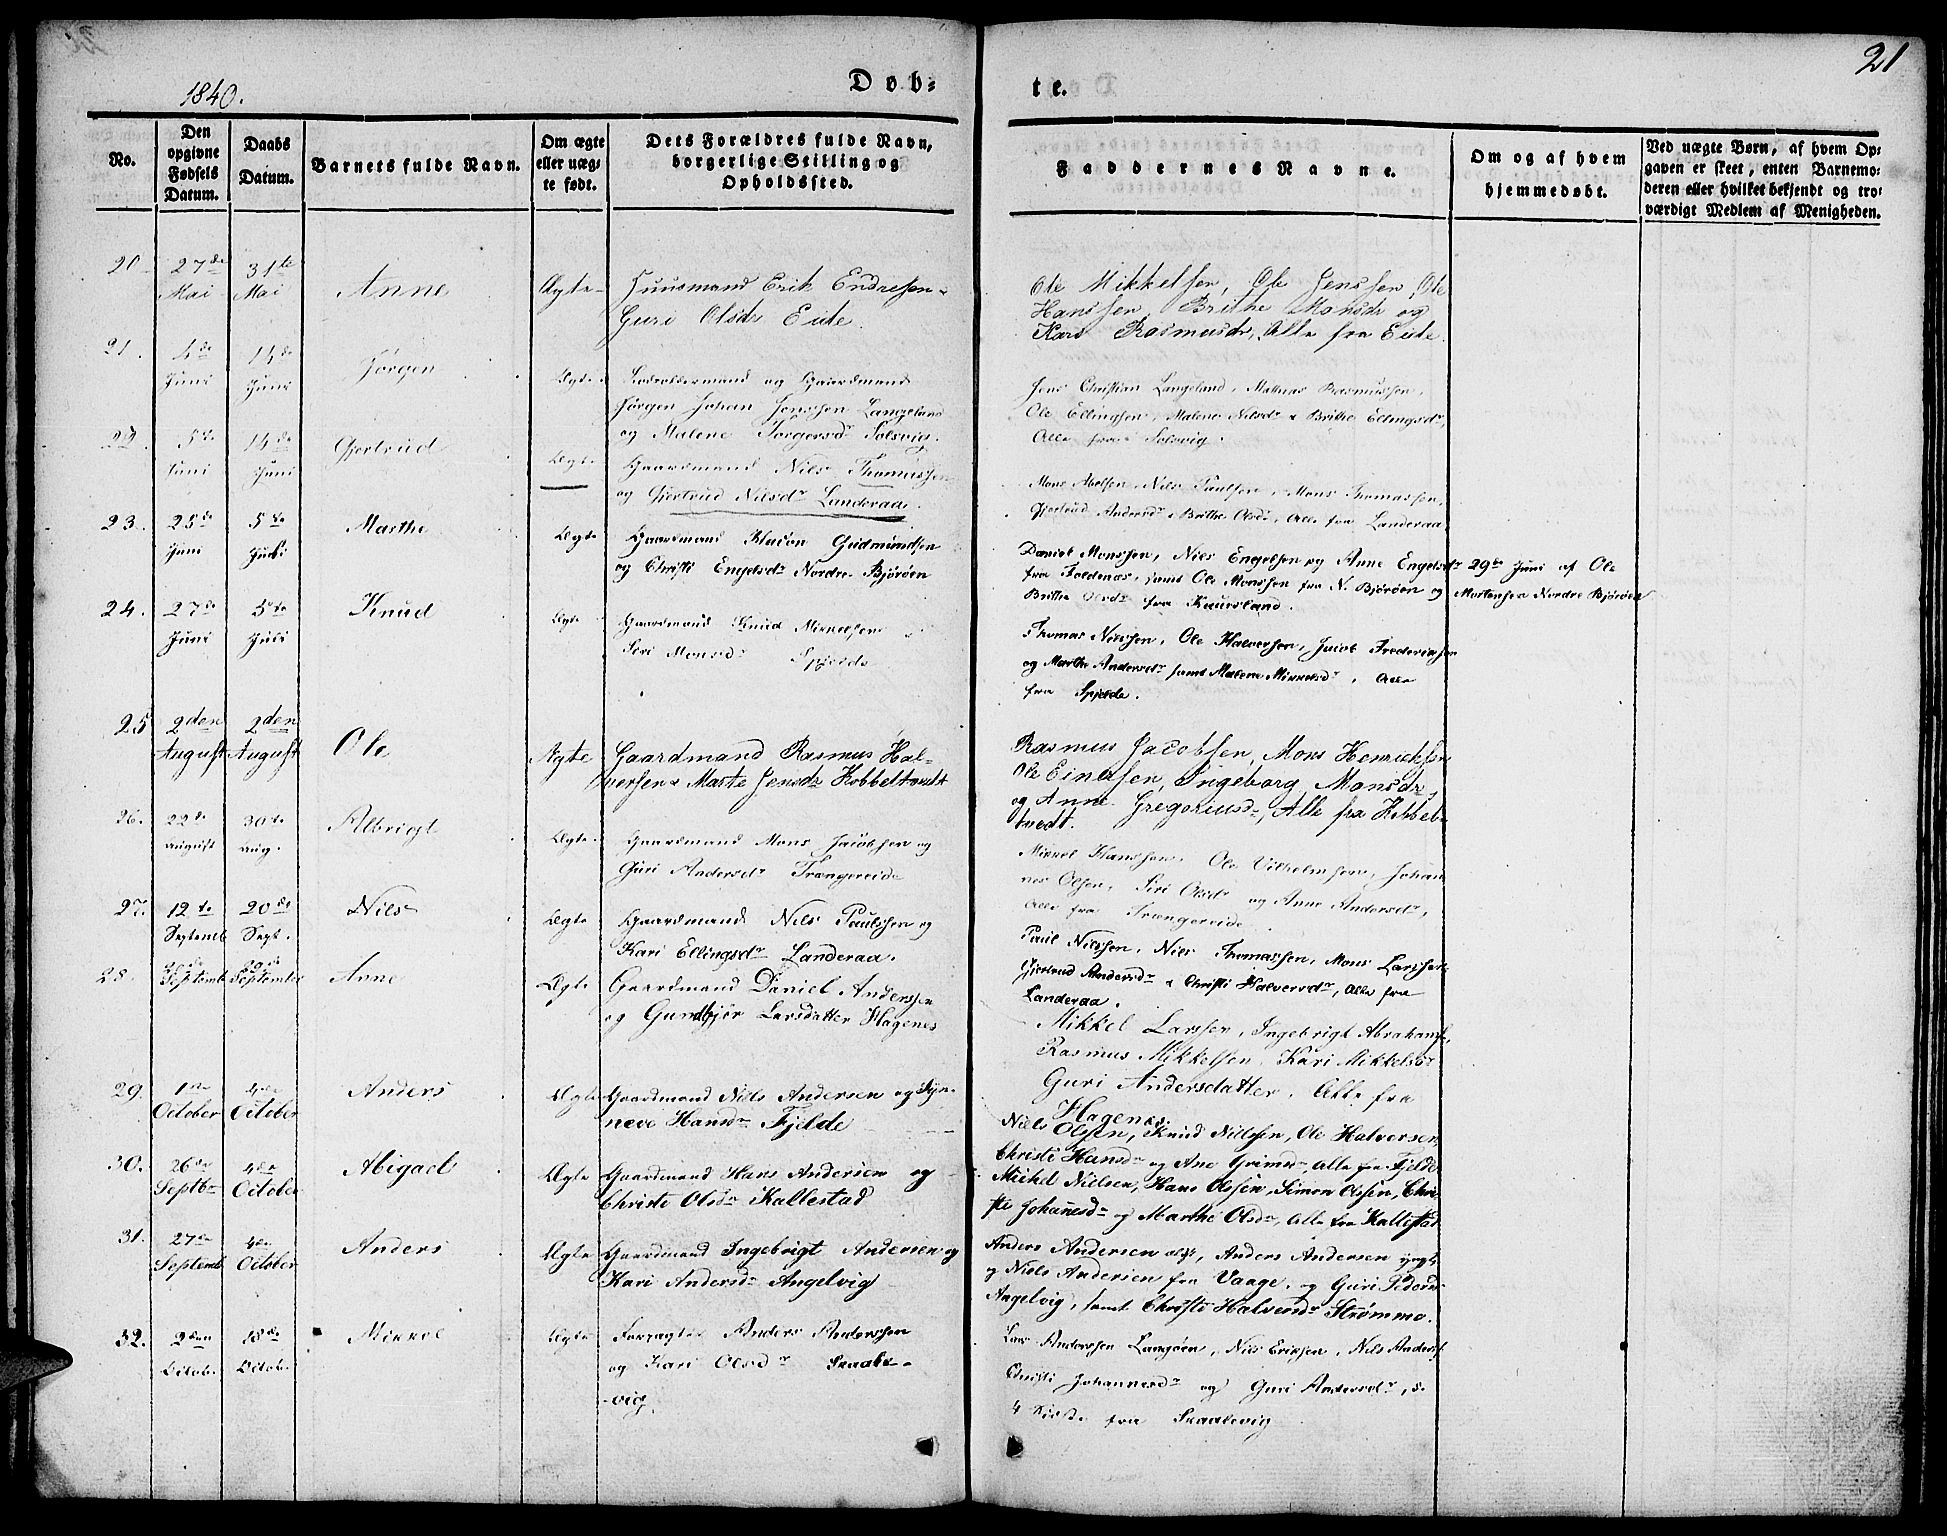 21
1840.
Døb-
te.
No.
Den opgivne Fødsels Datum.
Daabs Datum.
Barnets fulde Navn.
Om ægte eller uægte født.
Dets Forældres fulde Navn, borgerlige Stilling og Opholdssted.
Faddernes Navne.
Om og af hvem hjemmedøbt.
Ved uægte Børn, af hvem Opgaven er skeet, enten Barnemoderen eller hvilket bekjendt og troværdigt Medlem af Menigheden.
20. 27de Mai 31te Mai Anne Ægte
Huusmand Erik Endresen
Guri Olsdr Eide.
Ole Mikkelsen, Ole Jenssen, Ole
Hanssen, Brithe Monsdr og
Kari Rasmusdr, Alle fra Eide.
21. 4de Juni 14de Juni Jørgen Ægte
og Gaardmand
Jørgen Johan Jenssen Langeland
og Malene Solsvig.
Jens Christian Langeland, Mathias Rasmussen,
Ole Ellingsen, Malene Nilsdr & Brithe Ellingsdr,
Alle fra Solsvig.
22. 5te Juni 14de Juni Gjertrud Ægte
Gaardmand Nils Thomassen
og Gjertrud Nilsdr Landeraa.
Mons Nils Paulsen, Mons Thomassen,
Gjertrud Andersdr & Brithe Olsdr, Alle fra Landeraa.
23. 25de Juni 5te Juli Marthe Ægte
Gaardmand Haavor Gudmundsen
og Christi Engelsdr Nordre Bjørøen
Daniel Monssen, Nils Engelsen og Anne Engelsdr
fra Foldenæs, samt Ole Monssen fra N. Bjørøen og
Brithe Olsdr fra
29de Juni af Ole
Mortensen Nordre Bjørøen
24. 27de Juni 5te Juli Knud Ægte
Gaardmand Knud Mikkelsen
Siri Monsdr Spjelde
Thomas Nilssen, Ole Halversen, Jacob Frederiksen
og Marthe Andersdr samt Malene Mikkelsdr, Alle
fra Spjelde.
25 2den August 2den August Ole Ægte
Gaardmand Rasmus Hal-
versen & Marte Jensdr Kobbeltvedt
Rasmus Jacobsen, Mons Henriksen
Ole Einersen, Ingeborg Monsdr,
og Anne Gregoriusdr, Alle fra Kobbel-
tvedt.
26. 22de August 30te Aug. Albrigt Ægte
Gaardmand Mons Jacobsen og
Guri Andersdr Trængereide
Mikkel Hanssen, Ole Vilhelmsen, Johan-
nes Olsen, Siri Olsdr og Anne Andersdr,
Alle fra Trængereide
27. 12te Septemb 20de Sept. Nils Ægte
Gaardmand Nils Paulssen og
Kari Ellingsdr Landeraa.
Paul Nilssen, Nils Thomassen, Mons Larssen
Gjertrud Andersdr & Christi Halversdr, Alle fra
Landeraa.
28. Septemb 20de September Anne Ægte
Gaardmand Daniel Anderssen
og Gundbjør Larsdatter Hagenes
Mikkel Larssen, Ingebrigt Abrahams.,
Rasmus Mikkelsen, Kari Mikkelsdr
Guri Andersdatter. Alle fra
Hagenes.
29. 1ste October 4de October Anders Ægte
Gaardmand Niels Andersen og Syn-
neve Hansdr Fjelde
Niels Olssen, Knud Nilssen, Ole Halversen
Christi Hansdr og Ane Grimsdr, Alle fra Fjelde
30. 26de Septbr 4de October Abigael Ægte
Gaardmand Hans Andersen og
Christi Olsdr Kallestad
Michel Nielsen, Hans Olssen, Simon Olssen, Chri-
sti Johanesdr og Marthe Olsdr, Alle fra Kallestad
31. 27de Septemb 4de October Anders Ægte
Gaardmand Ingebrigt Andersen og
Kari Andersdr Angelvig
Anders Andersen ældst, Anders Andersen yngst
og Niels Andersen fra Vaage, og Guri Pedersdr
Angelvig, samt Christi Halversdr Strømme.
32. 2den Octob. 18de Octob. Mikkel Ægte
Anders Anderssen
og Kari Olsdr Skaale-
vig.
Lars Anderssen Langøen, Nils Erikssen, Nils Anders.
Christi Johannesdr og Guri Andersdr,
4 fra Skaalevig